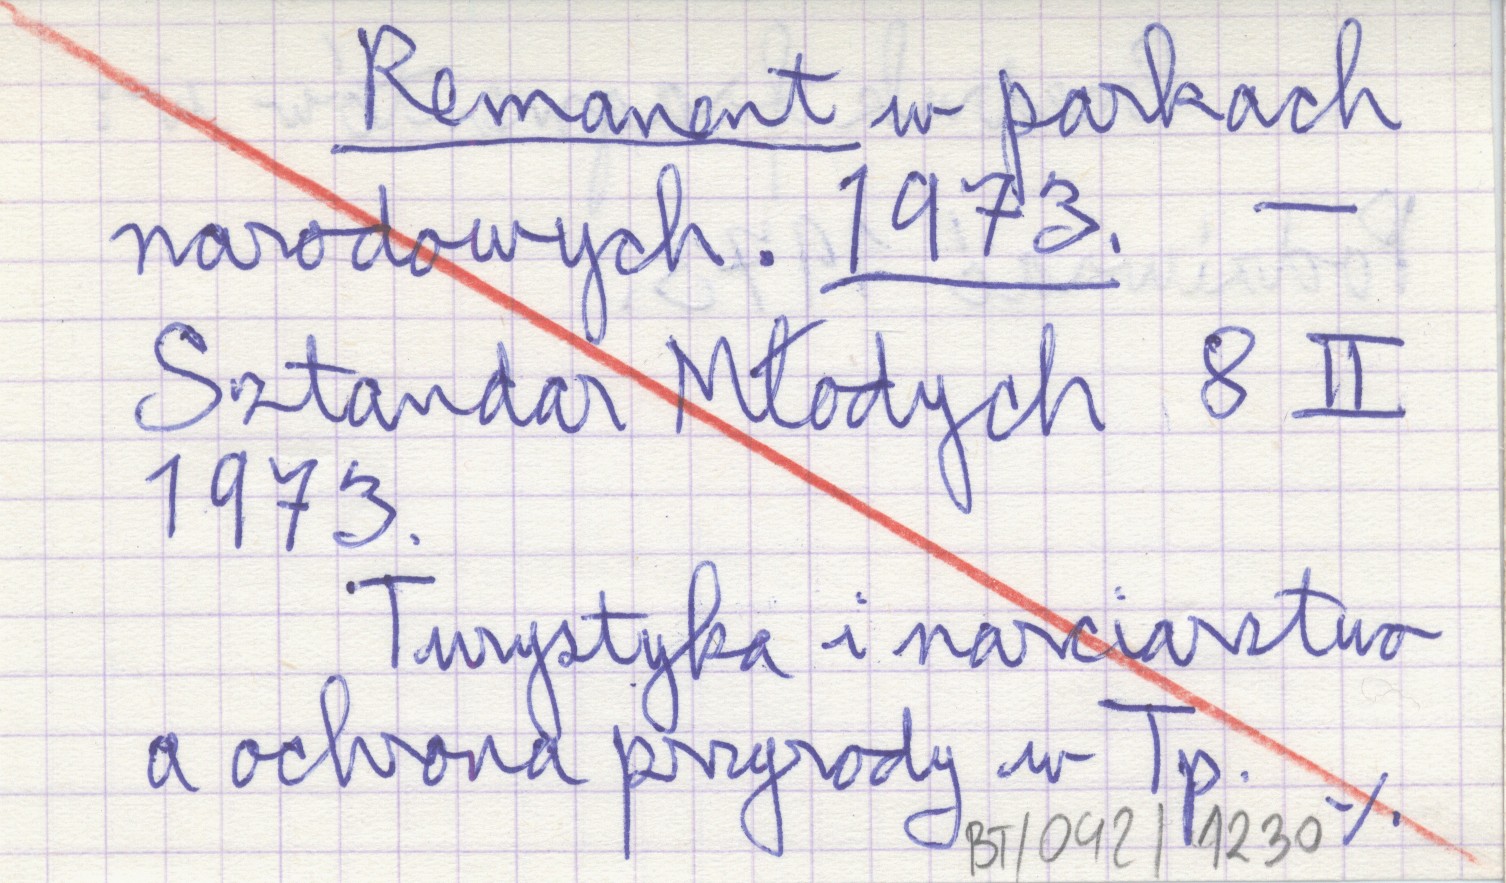 Remanent w parkach
narodowych. 1973. —
Sztandar Młodych 8 II
1973.
Turystyka i narciarstwo
a ochrona przyrody w Tp.
-/.
BT/042/1230